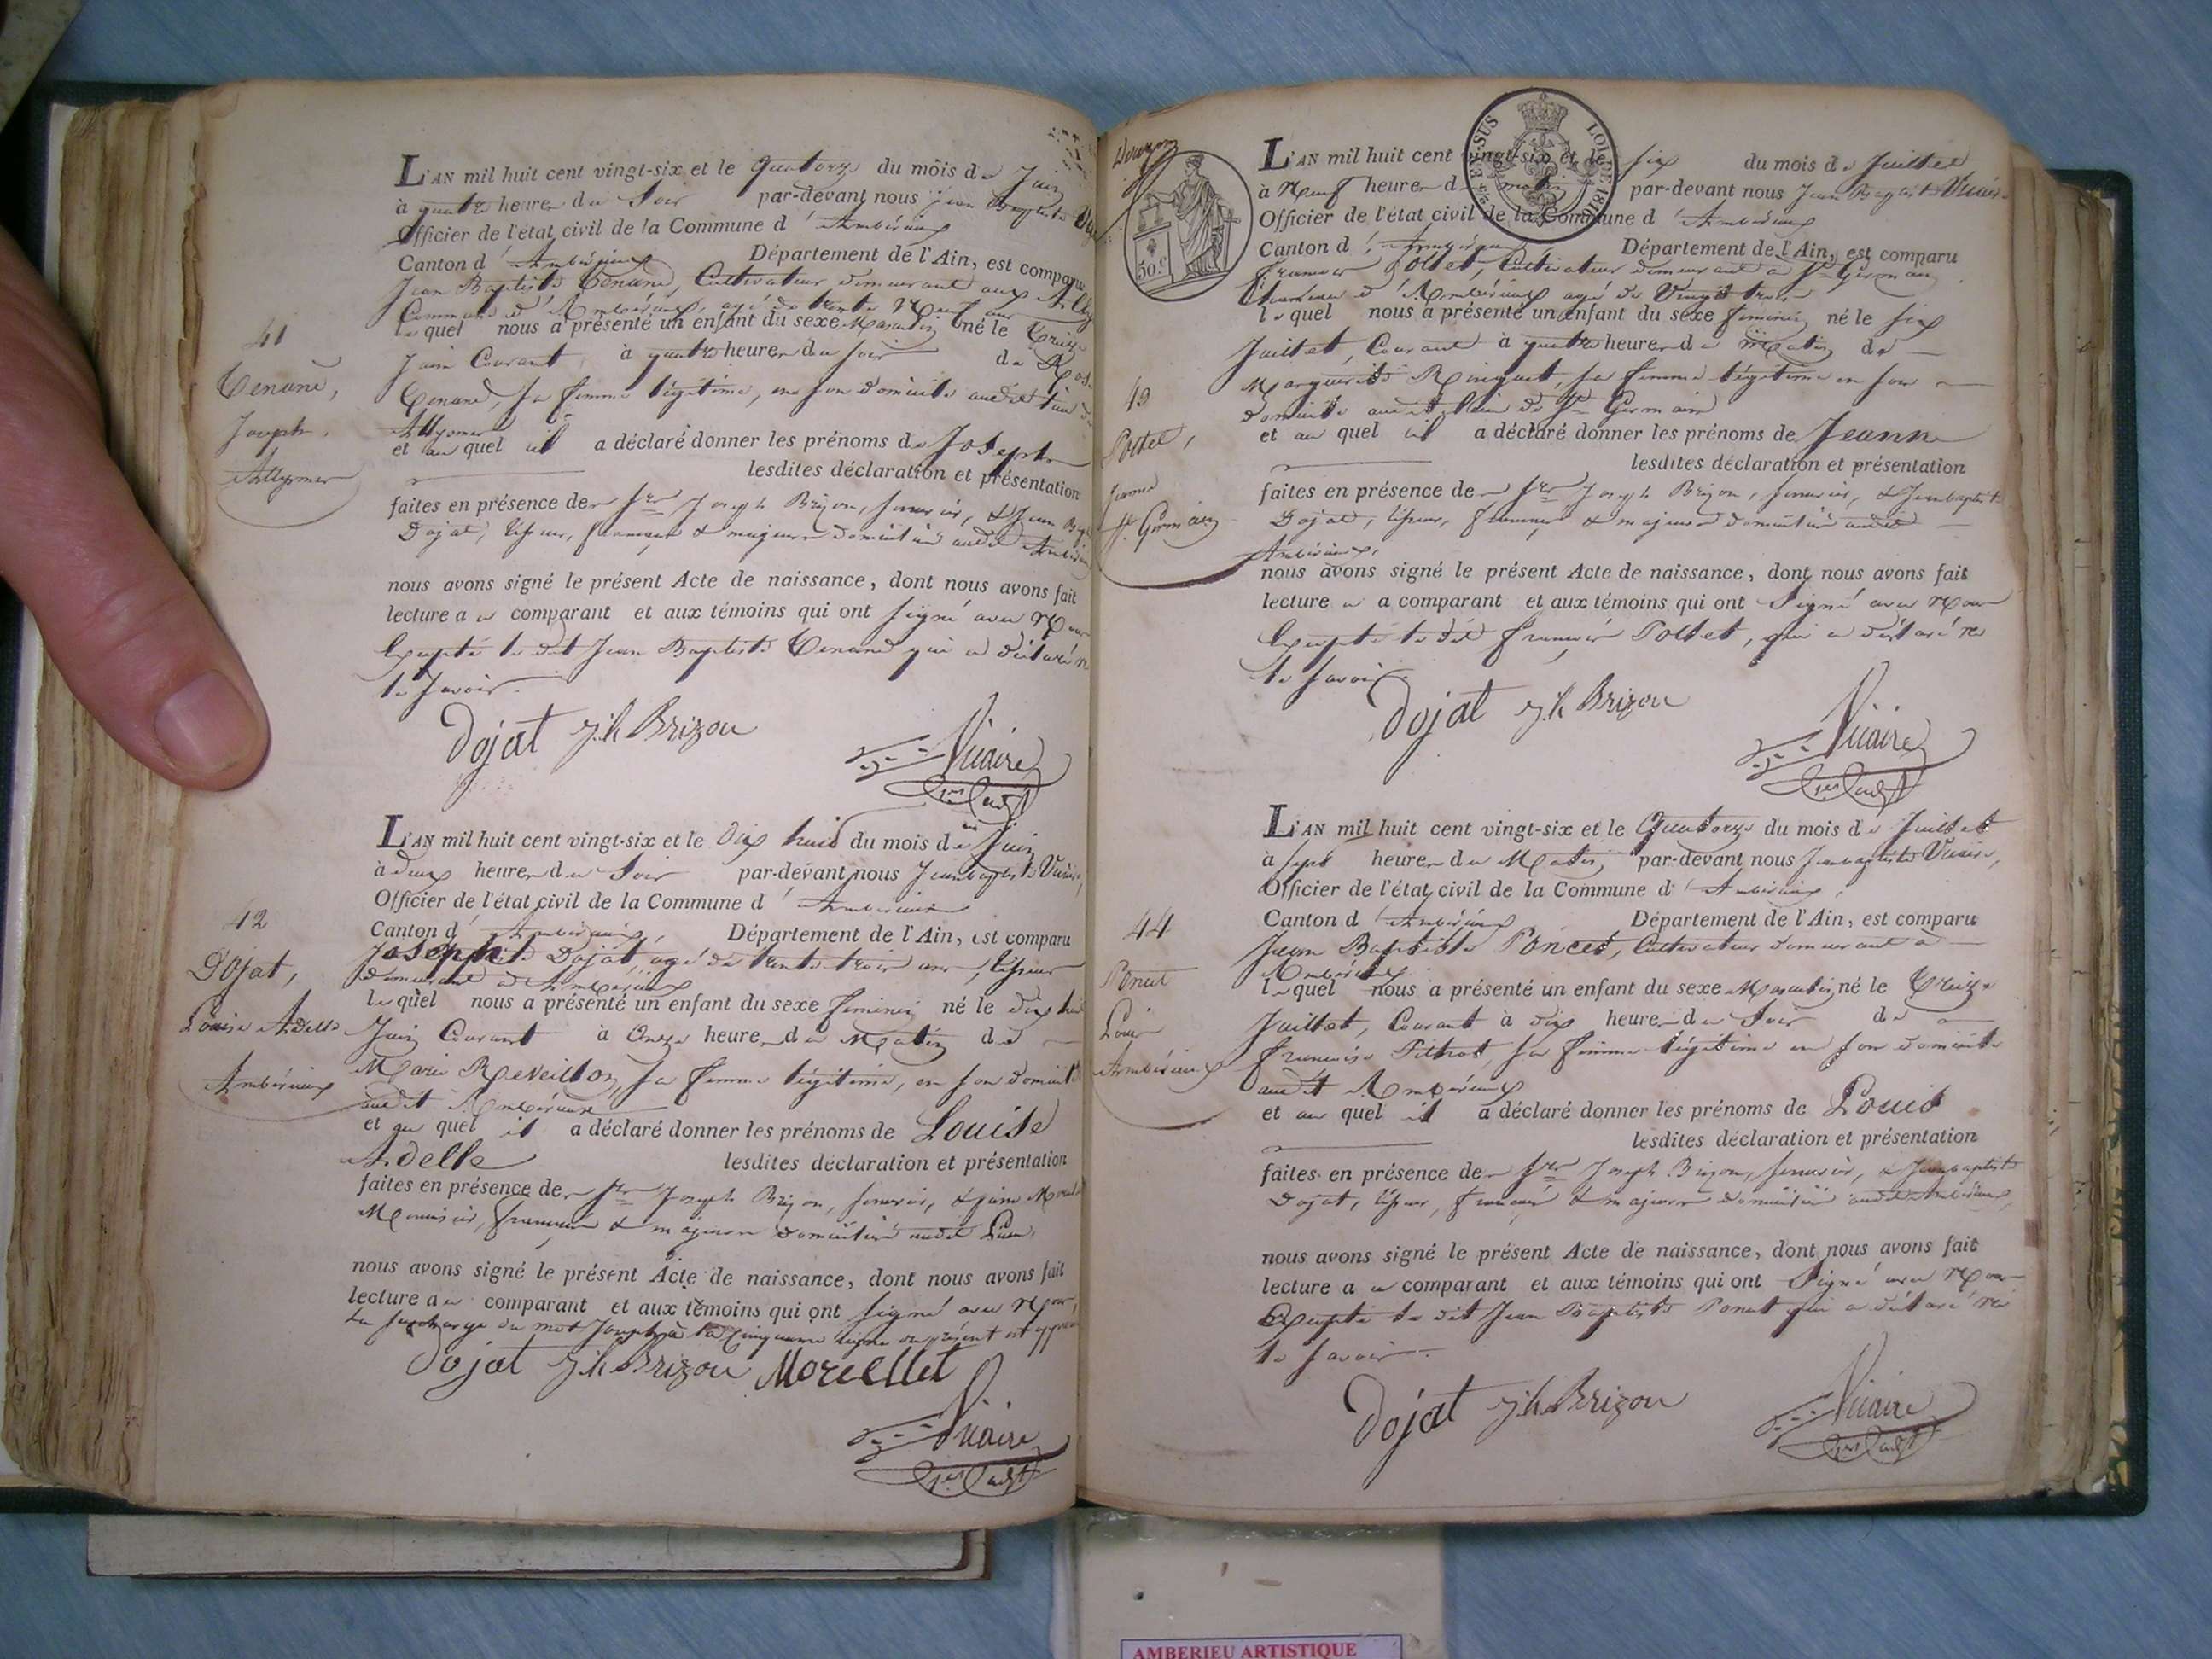 L'AN mil huit cent vingt-six et le quatorze du mois de Juin
à quatre heures du Soir par-devant nous Jean Baptiste
Officier de l'état civil de la Commune d'Ambérieux
Canton d'Ambérieux Département de l'Ain, est comparu
Jean Baptiste Tenand, Cultivateur demeurant aux
Commune d'Ambérieux, agé de trente Neuf ans
lequel nous a présenté un enfant du sexe Masculin né le treize
41
Juin Courant à quatre heures du soir de Rose
Tenand,
Tenand, sa femme légitime, en son domicile audit lieu
Joseph.
Allymes
Allymes
et au quel il a déclaré donner les prénoms de Joseph
lesdites déclaration et présentation
faites en présence des srs Joseph Brizon, serrurier, & Jean
Dojat, tisseur, français & majeurs domiciliés audit
nous avons signé le présent Acte de naissance, dont nous avons fait
lecture au comparant et aux témoins qui ont signé avec Nous
Excepté le dit Jean Baptiste Tenand qui a déclaré ne
le savoir.
Dojat Jh Brizon
Vicaire
L'AN mil huit cent vingt-six et le Dix huit du mois de Juin
à deux heures du Soir par-devant nous Jean baptiste Vicaire,
Officier de l'état civil de la Commune d'Ambérieux
42
Canton d'Ambérieux, Département de l'Ain, est comparu
Dojat,
Joseph Dojat agé de trente trois ans, tisseur
demeurant à Ambérieux
lequel nous a présenté un enfant du sexe feminin né le dix huit
Louise Adelle
Juin Courant à Onze heures du Matin de
Ambérieux
Marie Reveillon, sa femme légitime, en son domicile
audit Ambérieux
et au quel il a déclaré donner les prénoms de Louise
Adelle lesdites déclaration et présentation
faites en présence des srs Joseph Brizon, serrurier, &
français & majeurs domiciliés audit Lieu,
nous avons signé le présent Acte de naissance, dont nous avons fait
lecture au comparant et aux témoins qui ont signé avec Nous,
La surcharge du mot Joseph à la cinquième ligne du présent est
Dojat Jh Brizon Morellet
Vicaire
50 c
L'AN mil huit cent vingt-six et le six du mois de Juillet
à Neuf heures du matin par-devant nous Jean Baptiste Vicaire
Officier de l'état civil de la Commune d'Ambérieux
Canton d'Ambérieux Département de l'Ain, est comparu
François Pottet, Cultivateur demeurant à St Germain
d'Ambérieux agé de Vingt trois
lequel nous a présenté un enfant du sexe feminin né le six
Juillet, Courant à quatre heures du Matin de
43
Marguerite Ringuet, sa femme légitime en son
domicile audit lieu de St Germain
Pottet,
et au quel il a déclaré donner les prénoms de Jeanne
lesdites déclaration et présentation
Jeanne
faites en présence des srs Joseph Brizon, serrurier, & Jean baptiste
St Germain
Dojat, tisseur, français & majeurs domiciliés audit
Ambérieux,
nous avons signé le présent Acte de naissance, dont nous avons fait
lecture au comparant et aux témoins qui ont Signé avec Nous
Excepté le dit françois Pottet, qui a déclaré ne
le savoir.
Dojat Jh Brizon
Vicaire
L'AN mil huit cent vingt-six et le Quatorze du mois de Juillet
à sept heures du Matin par-devant nous Jean baptiste Vicaire,
Officier de l'état civil de la Commune d'Ambérieux,
44
Canton d'Ambérieux Département de l'Ain, est comparu
Jean Baptiste Poncet, Cultivateur demeurant à
Ambérieux
Poncet
lequel nous a présenté un enfant du sexe Masculin né le treize
Louis
Juillet, Courant à dix heures du Soir de
Ambérieux
françoise Pittrat, sa femme légitime en son domicile
audit Ambérieux
et au quel il a déclaré donner les prénoms de Louis
lesdites déclaration et présentation
faites en présence des srs Joseph Brizon, serrurier, & Jean baptiste
Dojat, tisseur, français & majeurs domiciliés audit Ambérieux,
nous avons signé le présent Acte de naissance, dont nous avons fait
lecture au comparant et aux témoins qui ont Signé avec Nous
Excepté le dit Jean Baptiste Poncet qui a déclaré ne
le savoir.
Dojat Jh Brizon
Vicaire
AMBERIEU ARTISTIQUE